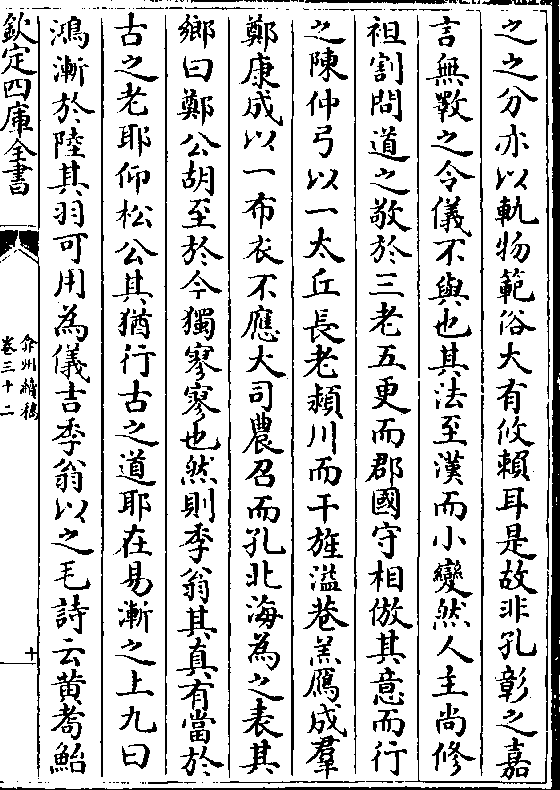 之之分亦以軌物範俗大有攸賴耳是故非孔彰之嘉
言無斁之令儀不與也其法至漢而小變然人主尚修
袒割問道之敬於三老五更而郡國守相倣其意而行
之陳仲弓以一太丘長老潁川而干旌溢巷羔鴈成羣
鄭康成以一布衣不應大司農召而孔北海為之表其
鄉曰鄭公胡至於今獨寥寥也然則季翁其真有當於
古之老耶仰松公其猶行古之道耶在易漸之上九曰
鴻漸於陸其羽可用為儀吉季翁以之毛詩云黄耉鮐
欽定四庫全書
弇州續稿
卷三十二
十